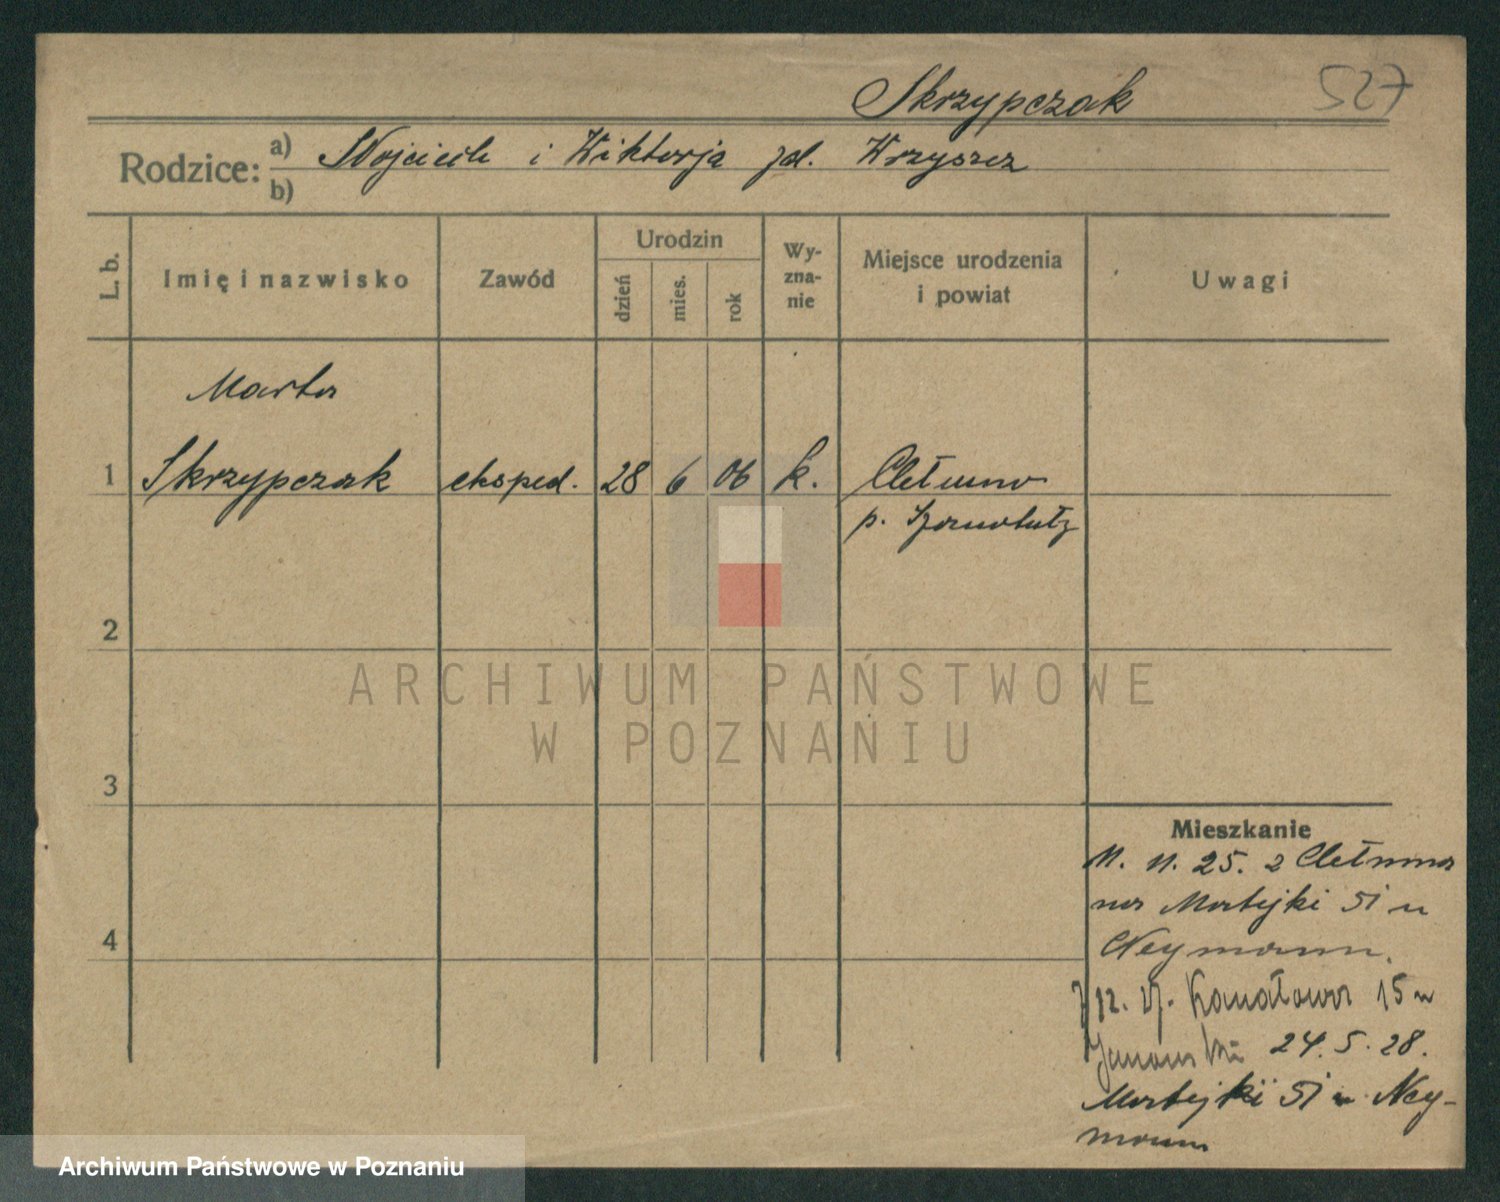 527
Skrzypczak
Rodzice: a) Wojciech i Wiktorja zd. Wrzyszcz
b)
L. b. Imię i nazwisko Zawód Urodzin dzień mies. rok Wy-zna-nie Miejsce urodzenia i powiat Uwagi
Marta
1 Skrzypczak eksped. 28 6 06 k. Chełmno
p. Szamotuły
2
3
4
Mieszkanie
11. 11. 25. z Chełmna
na Matejki 51 u
Neymann.
Kanałowa 15 u
24. 5. 28.
Matejki 51 u Ney-
mann
ARCHIWUM PAŃSTWOWE
W POZNANIU
Archiwum Państwowe w Poznaniu